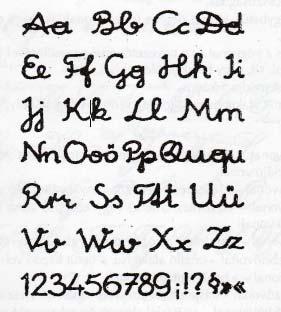 Aa Bb Cc Dd
Ee Ff Gg Hh Ii
Jj Kk Ll Mm
Nn Ooö Pp Ququ
Rrr Ss Tt Uü
Vv Ww Xx Zz
123456789¡!?§*«